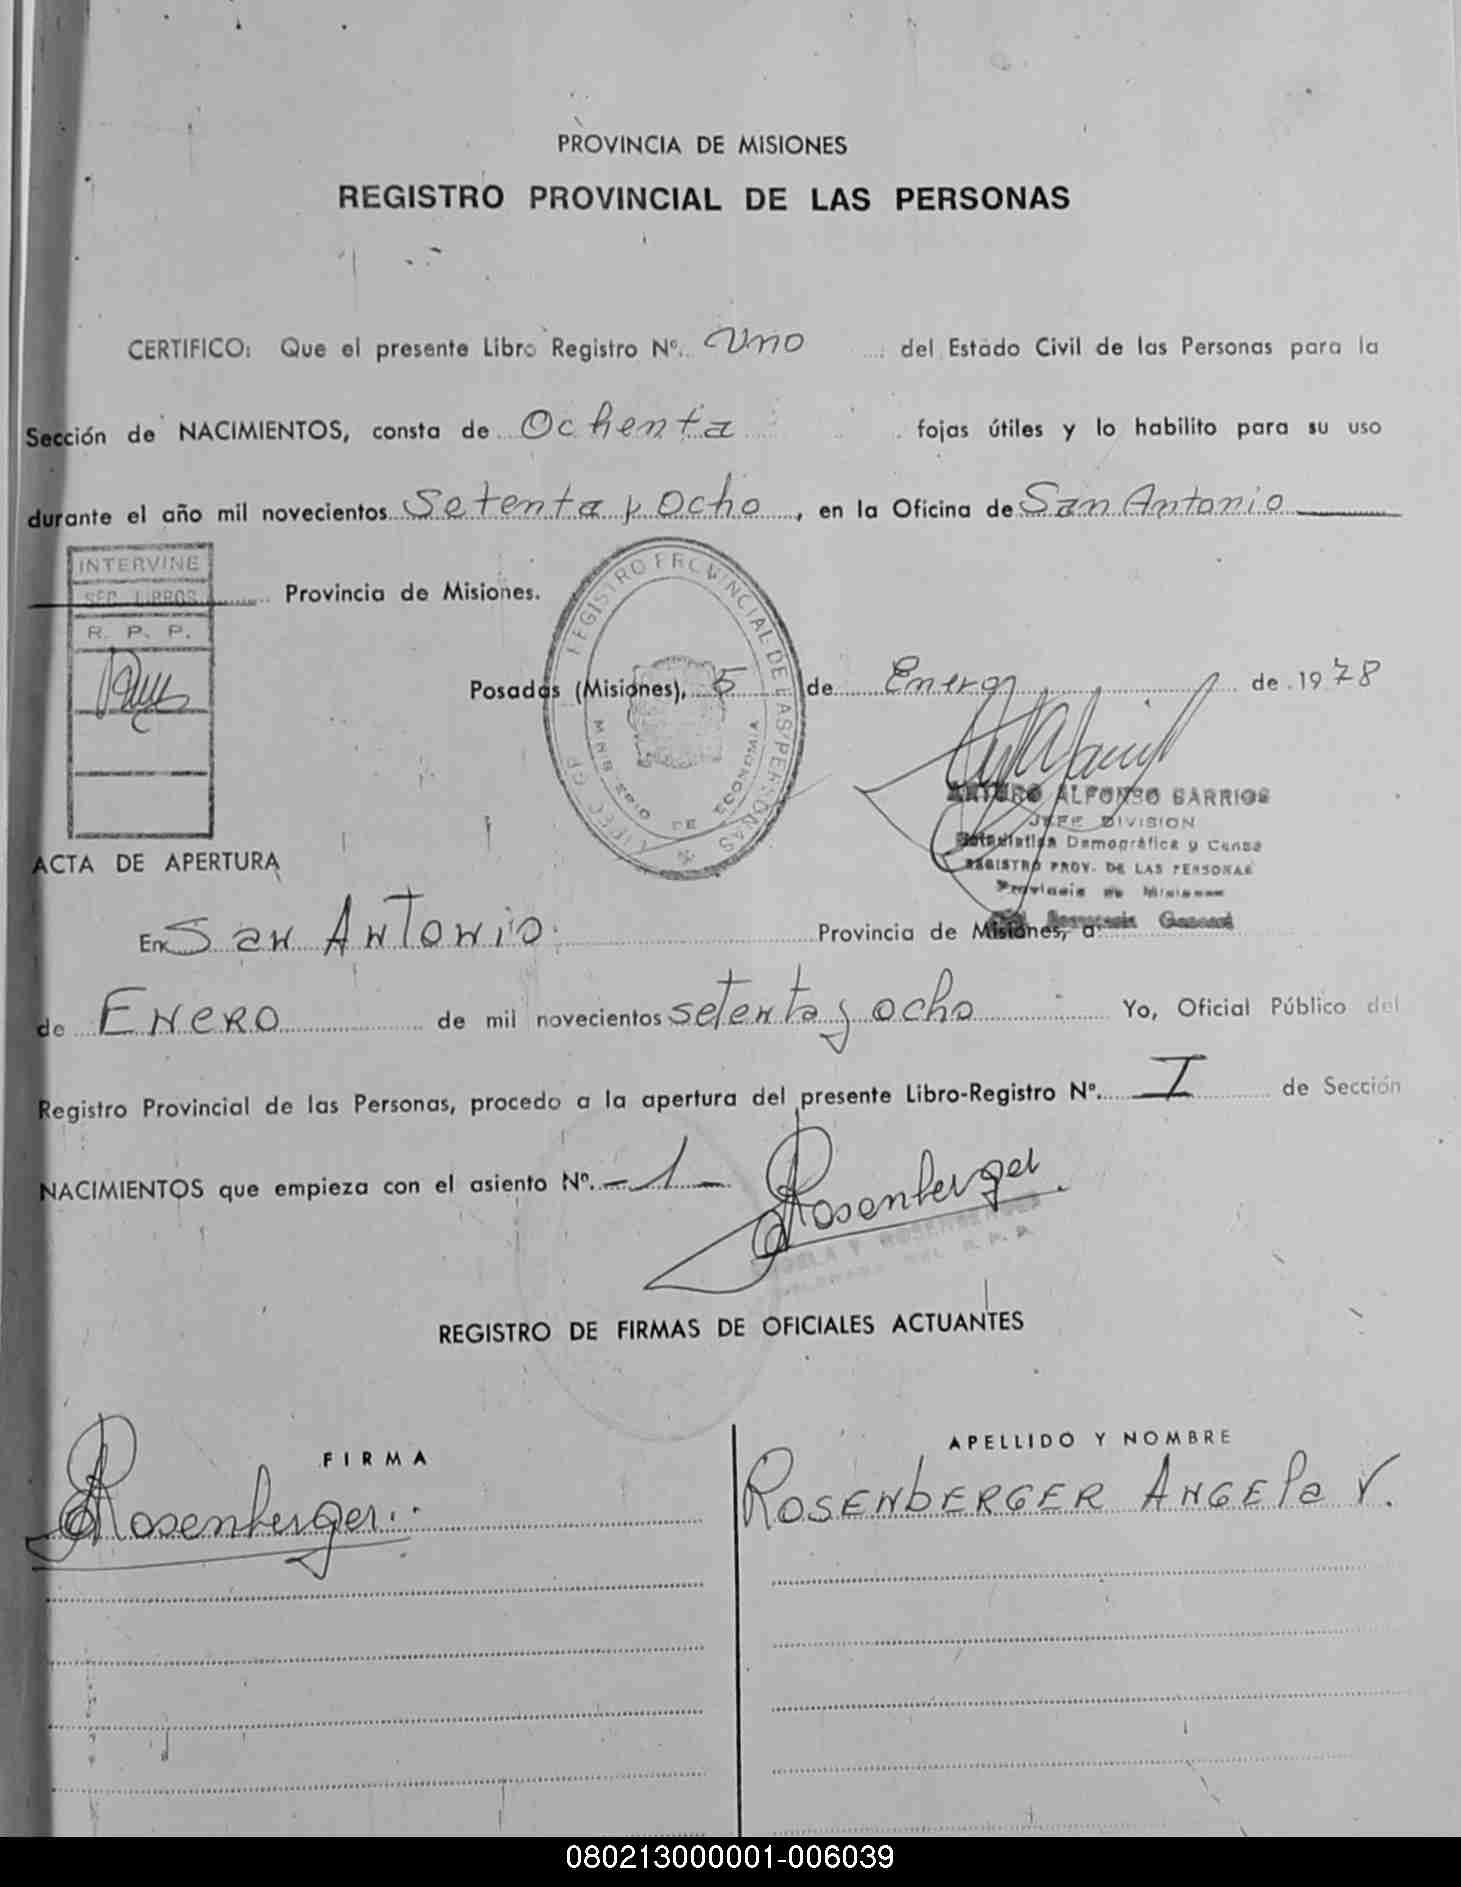 PROVINCIA DE MISIONES
REGISTRO PROVINCIAL DE LAS PERSONAS
CERTIFICO: Que el presente Libro Registro Nº. Uno del Estado Civil de las Personas para la
Sección de NACIMIENTOS, consta de Ochenta fojas útiles y lo habilito para su uso
durante el año mil novecientos Setenta y Ocho, en la Oficina de San Antonio
INTERVINE
SEC. LIBROS
R. P. P.
Provincia de Misiones.
REGISTRO PROVINCIAL DE LAS PERSONAS
DE ECONOMIA
Posadas (Misiones), 5 de Enero de 1978
ARTURO ALFONSO BARRIOS
JEFE DIVISION
Estadistica Demográfica y Censo
REGISTRO PROV. DE LAS PERSONAS
Provincia de Misiones
ACTA DE APERTURA
En San Antonio Provincia de Misiones, a
de Enero de mil novecientos setenta y ocho Yo, Oficial Público del
Registro Provincial de las Personas, procedo a la apertura del presente Libro-Registro Nº. I de Sección
NACIMIENTOS que empieza con el asiento Nº. -1-
Rosenberger
REGISTRO DE FIRMAS DE OFICIALES ACTUANTES
FIRMA
APELLIDO Y NOMBRE
Rosenberger
ROSENBERGER ANGELa V.
080213000001-006039